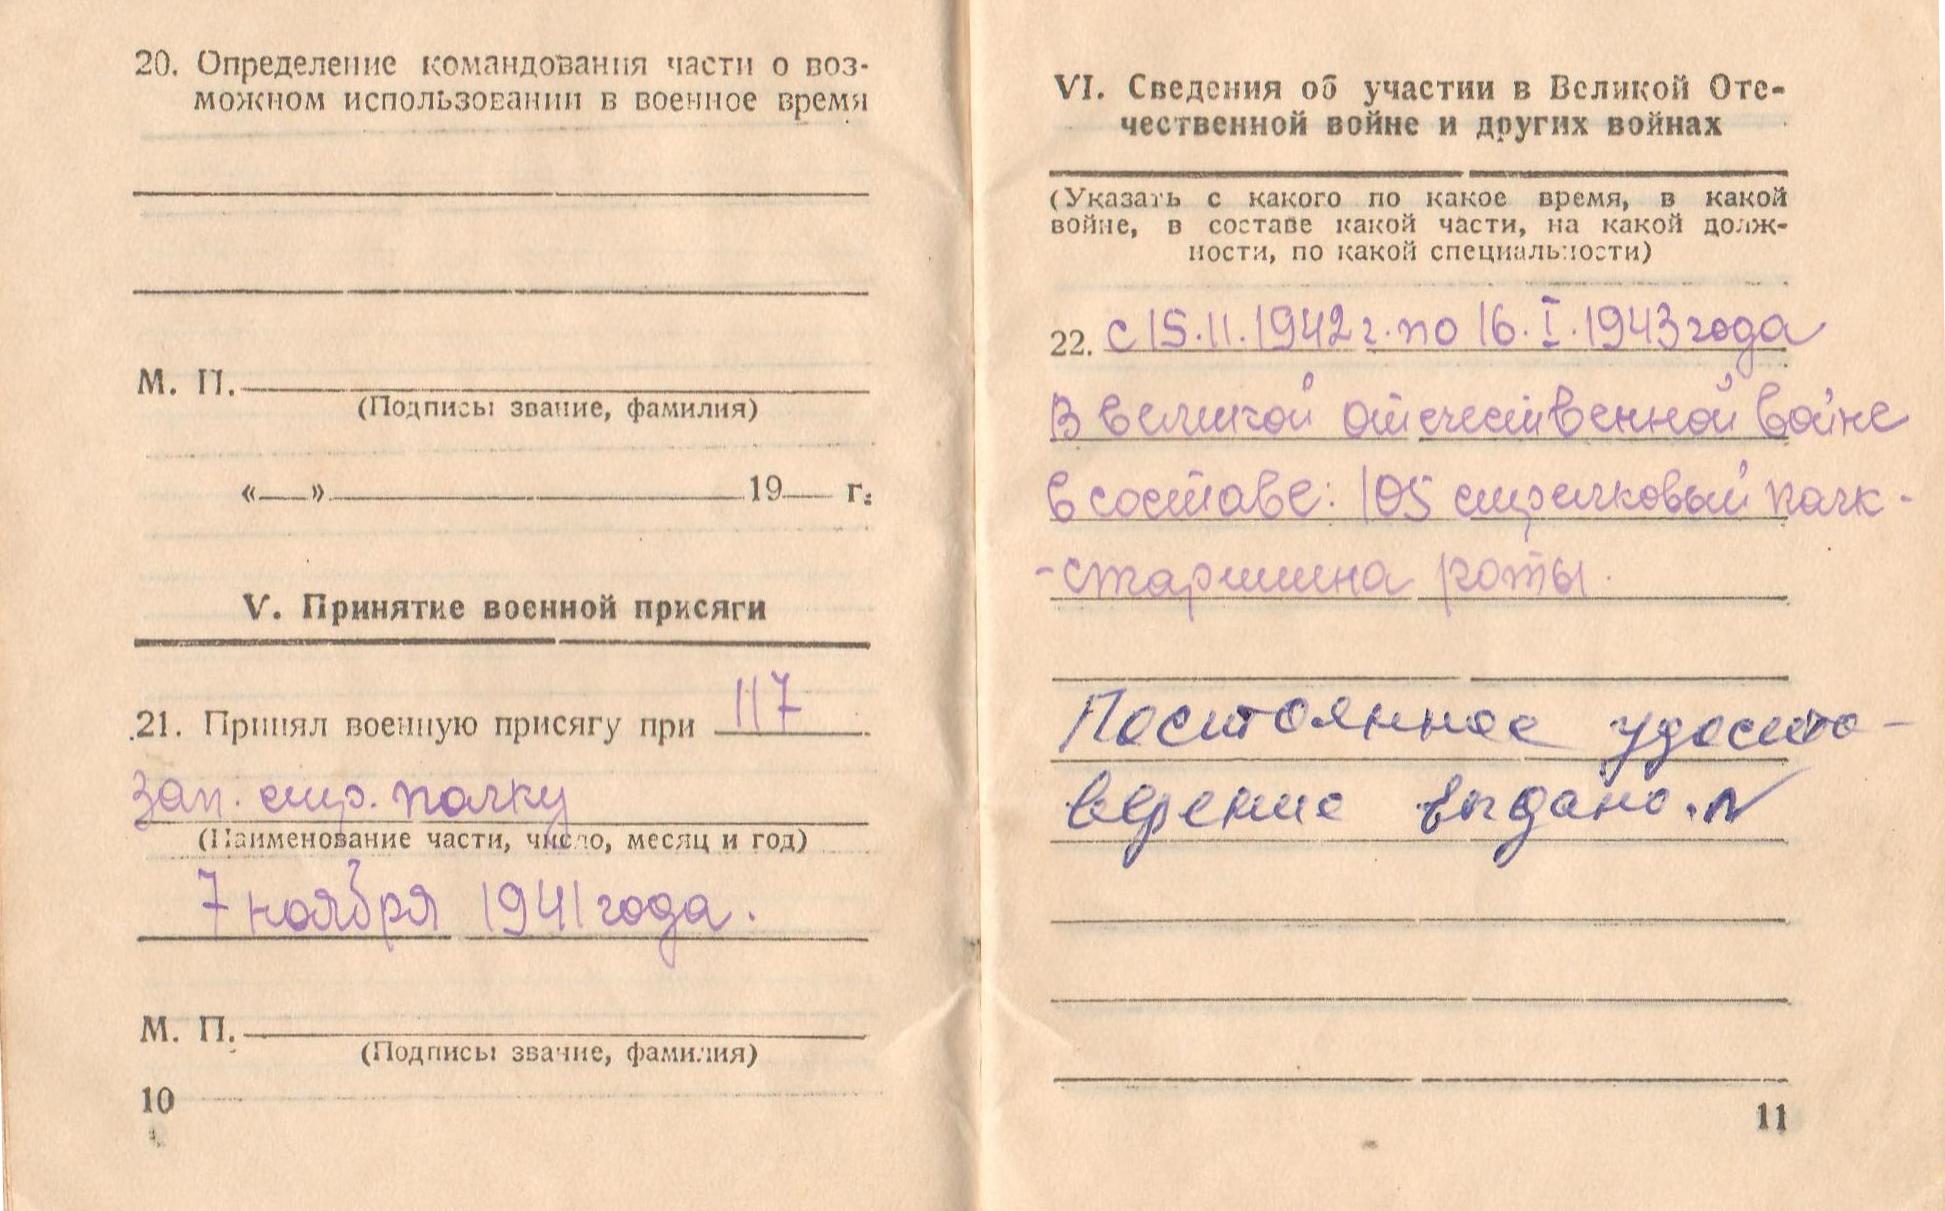 20. Определение командования части о воз-
можном использовании в военное время
М. П.
(Подпись, звание, фамилия)
«__» 19__ г.
V. Принятие военной присяги
21. Принял военную присягу при 117
зап. стр. полку
(Наименование части, число, месяц и год)
7 ноября 1941 года.
М. П.
(Подпись, звание, фамилия)
10
VI. Сведения об участии в Великой Оте-
чественной войне и других войнах
(Указать с какого по какое время, в какой
войне, в составе какой части, на какой долж-
ности, по какой специальности)
22. с 15.11.1942 г. по 16.I.1943 года
В великой отечественной войне
в составе: 105 стрелковый полк -
- старшина роты.
Постоянное удосто-
верение выдано.
11